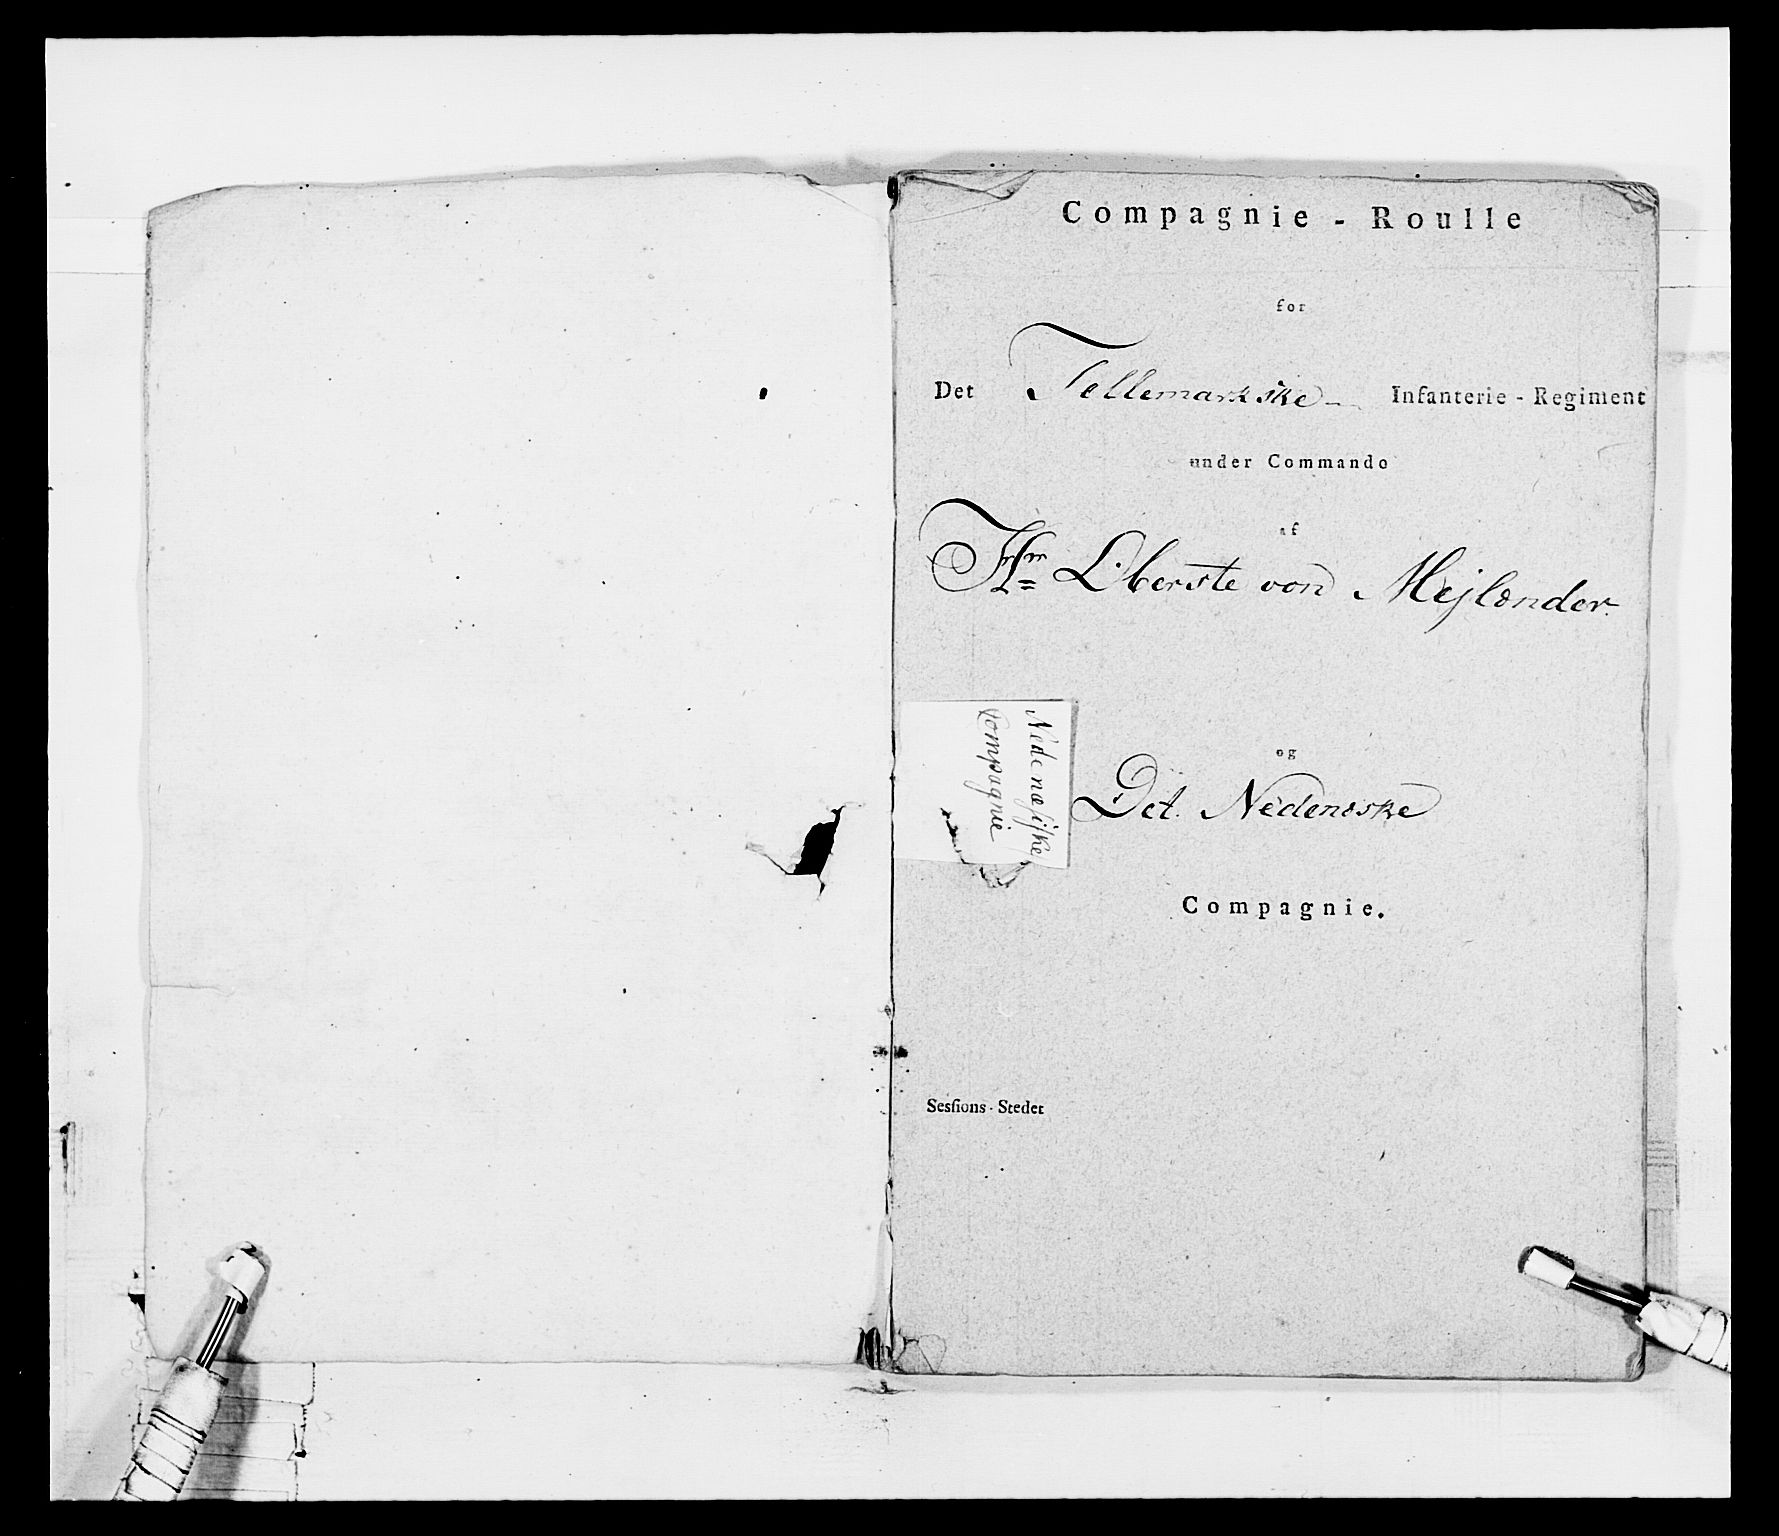 Compagnie - Roulle
for
Det Tellemarkske Infanterie - Regiment
under Commando
af
Hr Oberste von Mejlænder.
og
Det Nedenæske
Compagnie.
Nedenæsiske
Compagnie
Sesſions-Stedet